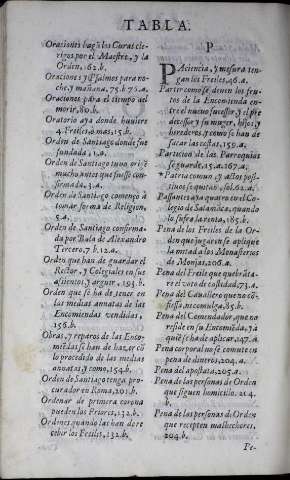 TABLA.
Oraciones hagã los Curas cle-
rigos por el Maestre, y la
Orden, 62.b.
Oraciones y Psalmos para no-
che, y mañana, 75.b 76.a.
Oraciones para el tiempo del
morir, 80.b.
Oratorio aya donde huuiere
4. Freiles, o mas, 15.b.
Orden de Santiago donde fue
fundada, 1.a.
Orden de Santiago tuuo origẽ
mucho antes que fuesse con-
firmada, 3.a.
Orden de Santiago començo à
tomar forma de Religion,
5.a.
Orden de Santiago confirma-
da por Bula de Alexandro
Tercero, 7.b 12.a.
Orden que han de guardar el
Rector, y Colegiales en sus
assientos, y arguir, 193.b.
Orden que se ha de tener en
las medias annatas de las
Encomiendas vendidas,
156.b.
Obras, y reparos de las Enco-
miẽdas, se han de hazer cõ
lo procedido de las medias
annatas, y como, 154.b.
Orden de Santiago tenga pro-
curador en Roma, 201.b.
Ordenar de primera corona
pueden los Priores, 132.b.
Ordenes quando las han de re
cebir los Freiles, 132.b.
P
PAciencia, y mesura ten-
gan los Freiles, 46.a.
Partir como se deuen los fru-
tos de la Encomienda en-
tre el nuevo sucessor, y el pre
decessor, y su muger, hijos, y
herederos, y como se han de
sacar las cestas, 159.a.
Particion de las Parroquias
se guarde, 45.a. 267.a.
* Patria comun, y actos posi-
tiuos se quitan, fol. 62.a.
Passantes aya quatro en el Co-
legio de Salamãca, quando
lo sufra la renta, 185.b.
Pena de los Freiles de la Or-
den que jugaren se aplique
la mitad a los Monasterios
de Monjas, 206.a.
Pena del Freile que quebrãta-
re el voto de castidad, 73.a.
Pena del Cauallero que no cõ-
fiessa, ne comulga, 85.b.
Pena del Comendador, que no
reside en su Encomiẽda, y à
quiẽ se ha de aplicar, 147.a.
Pena corporal no se comute en
pena de dineros, 204.a.
Pena del apostata, 205.a.
Pena de las personas de Orden
que siguen homicilio. 214.
b.
Pena de las personas de Orden
que recepten malhechores,
204.b.
Pe-